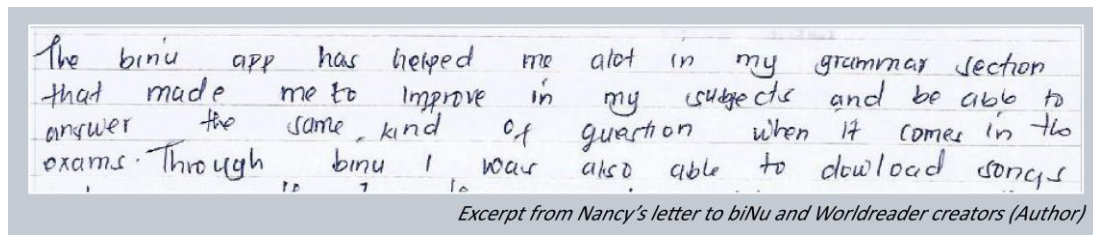 The binu app has helped me alot in my grammar section
that made me to improve in my subjects and be able to
answer the same kind of question when it comes in the
exams. Through binu I was also able to dowload songs
Excerpt from Nancy's letter to biNu and Worldreader creators (Author)